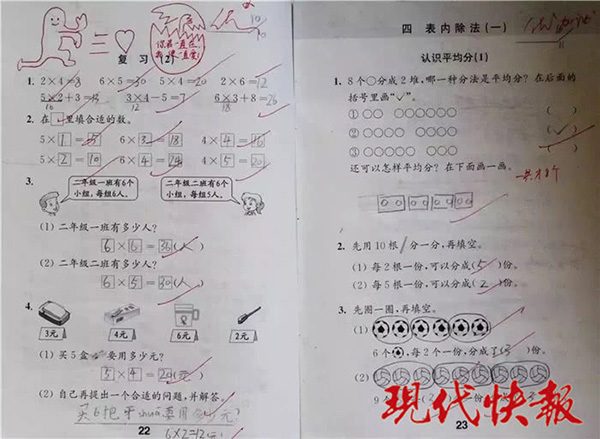 复 习 (2)
10
10
1. 2×4=8 6×5=30 5×4=20 2×6=12
5×2+3=13 3×4-5=7 6×3+8=26
10 12 18
2. 在□里填合适的数。
5×1=5 6×3=18 4×4=16
5×2=10 6×4=24 4×5=20
3.
二年级一班有6个
小组,每组6人。
二年级二班有6个
小组,每组5人。
(1) 二年级一班有多少人?
6×6=36(人)
(2) 二年级二班有多少人?
6×5=30(人)
4.
3元 4元 6元 2元
(1) 买5盒 要用多少元?
5×4=20(元)
(2) 自己再提出一个合适的问题,并解答。
买6把牙shuā要用多少元?
6×2=12
22
四 表内除法(一)
认识平均分(1)
1. 8个○分成2堆,哪一种分法是平均分?在后面的
括号里画“✓”。
① ○○ ○○○○○○ ( )
② ○○○○ ○○○○ (✓)
③ ○○○ ○○○○○ ( )
还可以怎样平均分?在下面画一画。
2. 先用10根 分一分,再填空。
(1) 每2根一份,可以分成(5)份。
(2) 每5根一份,可以分成(2)份。
3. 先圈一圈,再填空。
(1)
6个 ,每2个一份,分成了(3)份。
(2)
9个
23
现代快報